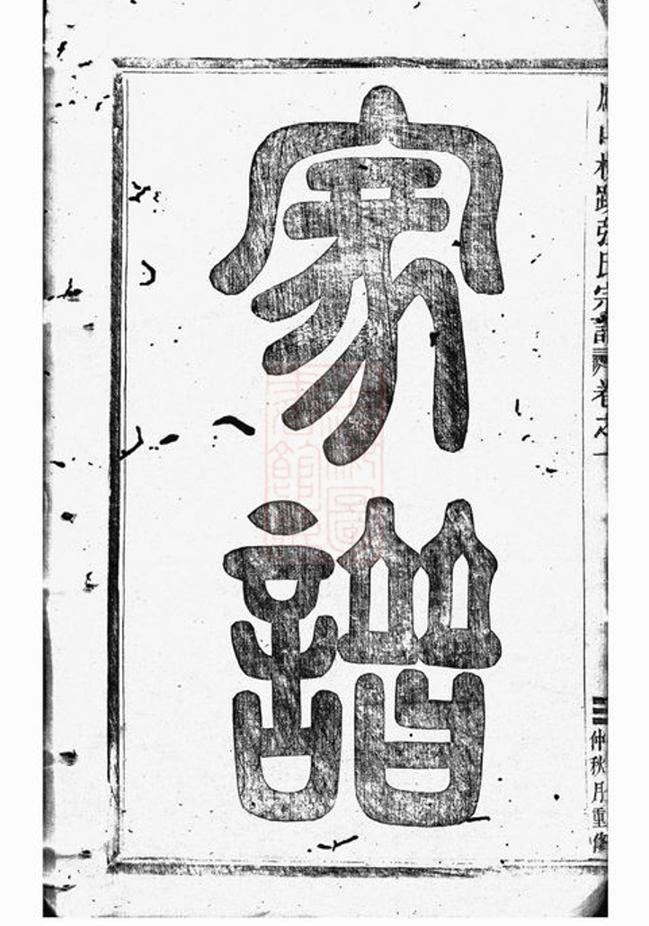 家譜
張氏宗譜卷之一
仲秋月重修